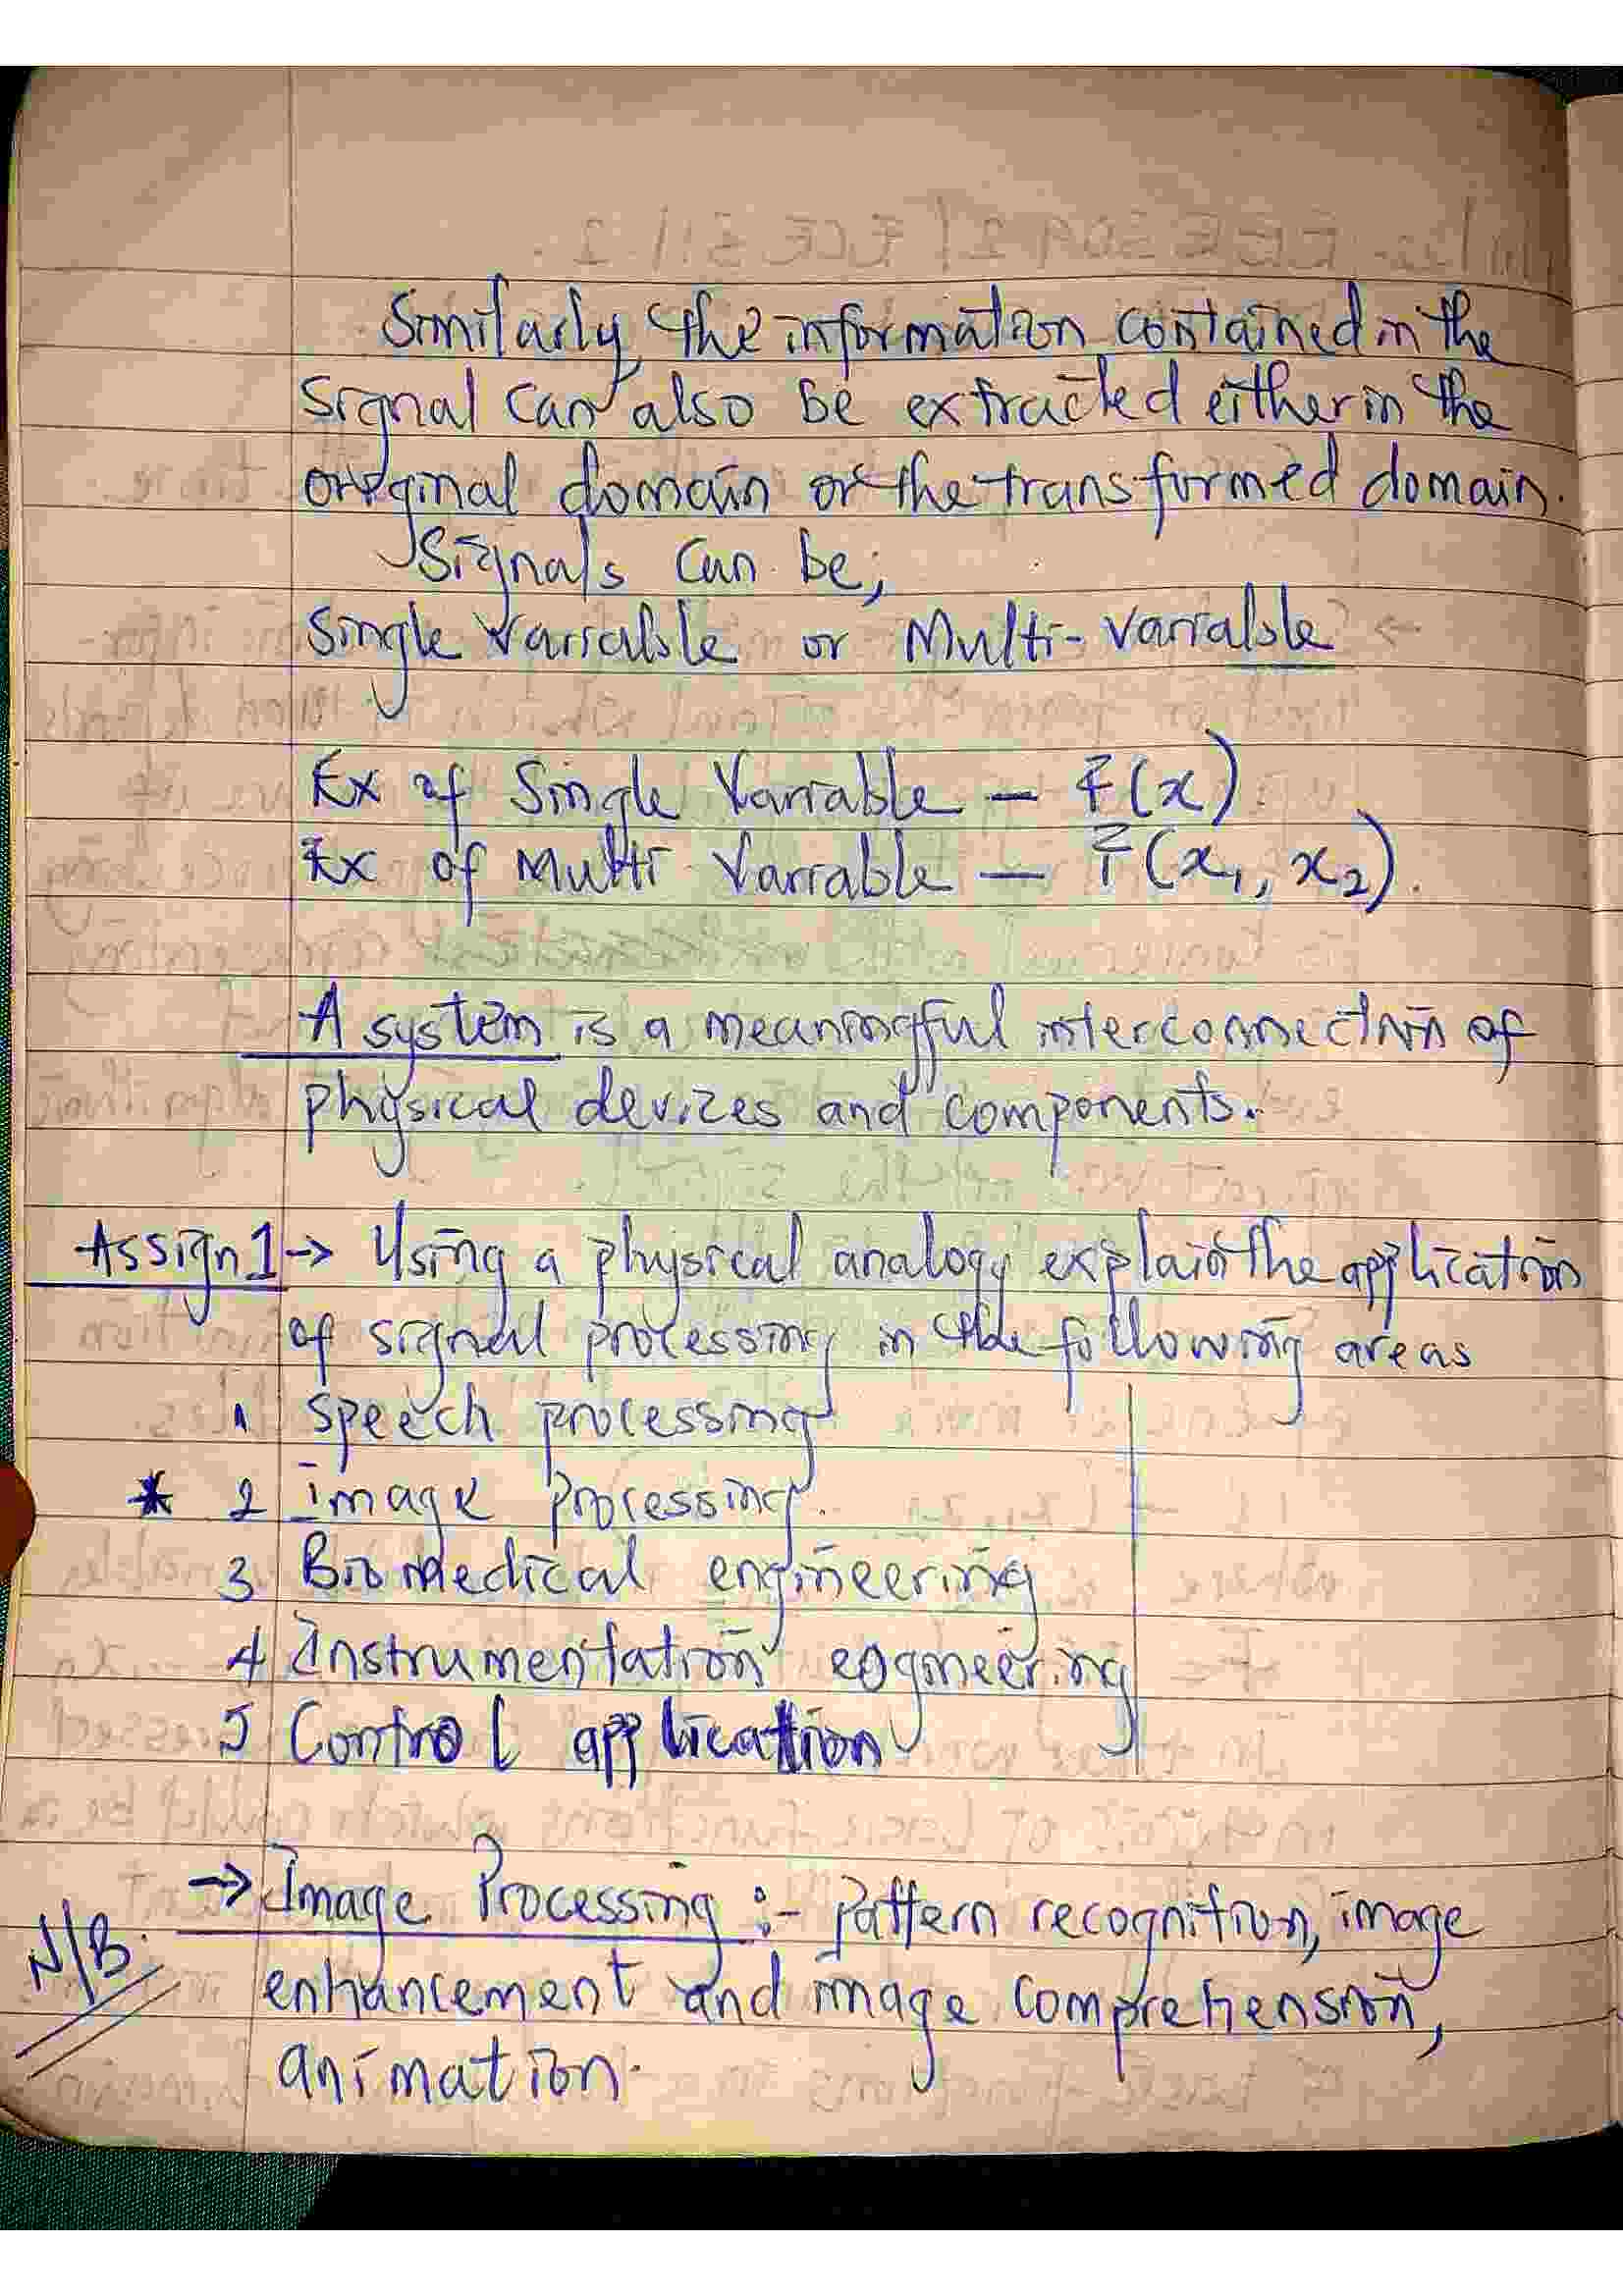 Similarly, the information contained in the
signal can also be extracted either in the
original domain or the transformed domain.
Signals can be;
Single variable or Multi-variable
Ex of Single Variable – F(x)
Ex of Multi Variable – F(x₁, x₂).
A system is a meaningful interconnection of
physical devices and components.
Assign 1 → Using a physical analogy explain the application
of signal processing in the following areas
1 speech processing
* 2 image processing.
3 Biomedical engineering
4 Instrumentation engineering
5 Control application
→ Image Processing :- pattern recognition, image
N/B.
enhancement and image comprehension,
animation.